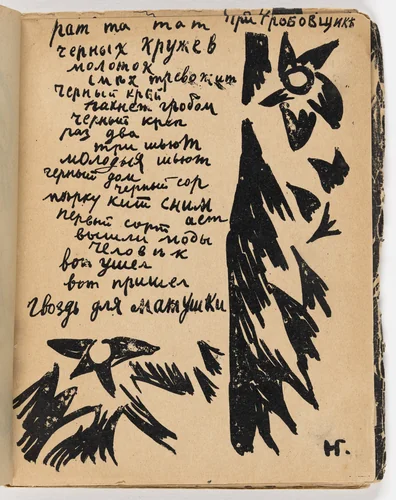 три гробовщика
рат та тат
черных кружев
молоток
смех тревожит
черный креп
пахнет гробом
черный креп
раз два
три шьют
молодыя шьют
черный дом
черный сор
кит сним
ает
первый сорт
вышли моды
человек
вот ушел
вот пришел
гвоздь для макушки
НГ.